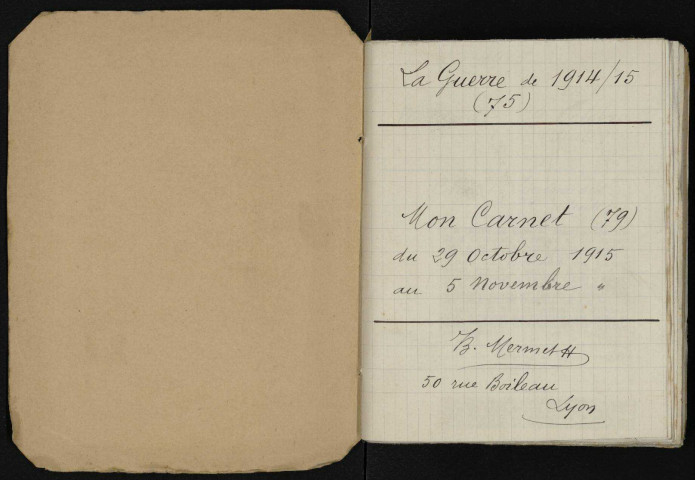 La Guerre de 1914/15
(75)
Mon Carnet (79)
du 29 Octobre 1915
au 5 Novembre "
B. Mermet
50 rue Boileau
Lyon